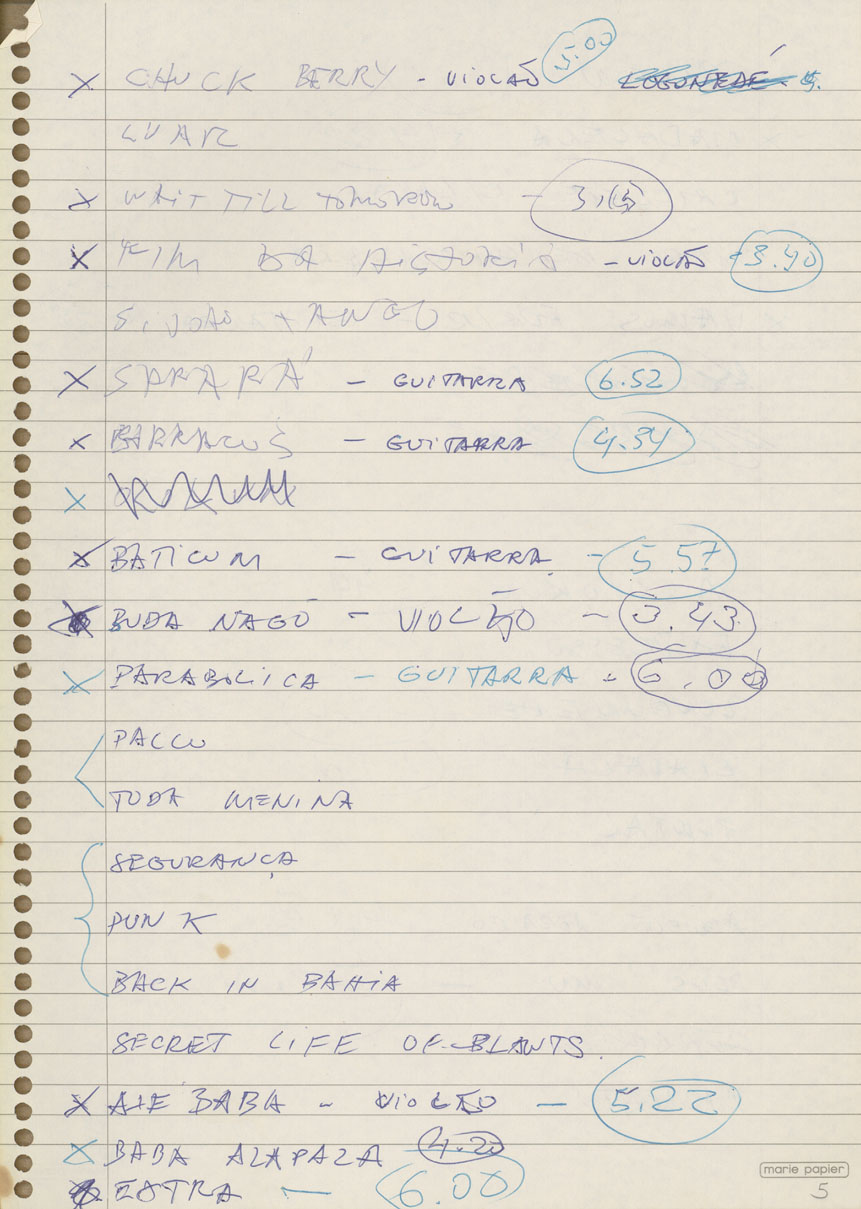 X CHUCK BERRY - VIOLÃO 5.00
LUAR
X WAIT TILL TOMORROW - 3.15
X FIM DA HISTÓRIA - VIOLÃO - 3.40
S. JOÃO X ANGO
X SARARÁ - GUITARRA 6.52
X BARRACOS - GUITARRA 4.34
X
X BATICUM - GUITARRA - 5.57
X BUDA NAGÔ - VIOLÃO - 3.43
X PARABOLICA - GUITARRA - 6.00
PALCO
TODA MENINA
SEGURANÇA
PUNK
BACK IN BAHIA
SECRET LIFE OF PLANTS.
X AXE BABA - VIOLÃO - 5.22
X BABA ALAPALA 4.20
EXTRA - 6.00
marie papier
5